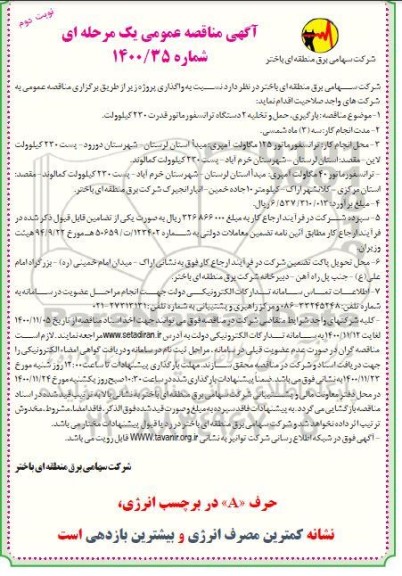 نوبت دوم
آگهی مناقصه عمومی یک مرحله ای
شماره ۱۴۰۰/۳۵
شرکت سهامی برق منطقه ای باختر
شرکت سهامی برق منطقه ای باختر در نظر دارد نسبت به واگذاری پروژه زیر از طریق برگزاری مناقصه عمومی به
شرکت های واجد صلاحیت اقدام نماید:
۱- موضوع مناقصه: بارگیری، حمل و تخلیه ۲ دستگاه ترانسفورماتور قدرت ۲۳۰ کیلوولت.
۲- مدت انجام کار: سه (۳) ماه شمسی.
۳- محل انجام کار: ترانسفورماتور ۱۲۵ مگاولت آمپری: مبدأ استان لرستان - شهرستان دورود - پست ۲۳۰ کیلوولت
لاین - مقصد: استان لرستان - شهرستان خرم آباد - پست ۲۳۰ کیلوولت کمالوند.
- ترانسفورماتور ۴۰ مگاولت آمپری: مبدأ استان لرستان - شهرستان خرم آباد - پست ۲۳۰ کیلوولت کمالوند - مقصد:
استان مرکزی - کلانشهر اراک - کیلومتر ۱۰ جاده خمین - انبار انجیرک شرکت برق منطقه ای باختر.
۴- مبلغ برآورد: ۶/۵۳۷/۳۱۰/۰۱۳ ریال
۵- سپرده شرکت در فرآیند ارجاع کار به مبلغ ۳۲۶ ۸۶۶ ۰۰۰ ریال به صورت یکی از تضامین قابل قبول ذکر شده در
فرآیند ارجاع کار مطابق آئین نامه تضمین معاملات دولتی به شماره ۱۲۳۴۰۲/ت ۵۰۶۵۹ هـ مورخ ۹۴/۹/۲۲ هیئت
وزیران.
۶- محل تحویل پاکت تضمین شرکت در فرآیند ارجاع کار فوق به نشانی اراک - میدان امام خمینی (ره) - بزرگراه امام
علی (ع) - جنب پل راه آهن - دبیرخانه شرکت برق منطقه ای باختر.
۷- اطلاعات تماس سامانه تدارکات الکترونیکی دولت جهت انجام مراحل عضویت در سامانه به
شماره تلفن: ۳۳۲۴۵۲۴۸-۰۸۶ و مرکز راهبری و پشتیبانی به شماره تلفن: ۲۷۳۱۳۱۳۱-۰۲۱
- کلیه شرکتهای واجد شرایط متقاضی شرکت در مناقصه فوق می توانند جهت اخذ اسناد مناقصه از تاریخ ۱۴۰۰/۱۱/۰۵
لغایت ۱۴۰۰/۱۱/۱۲ به سامانه تدارکات الکترونیکی دولت به آدرس www.setadiran.ir مراجعه نمایند. لازم است
مناقصه گران در صورت عدم عضویت قبلی در سامانه، مراحل ثبت نام در سامانه و دریافت گواهی امضاء الکترونیکی را
جهت دریافت اسناد و شرکت در مناقصه محقق سازند. مهلت بارگذاری پیشنهادات تا ساعت ۱۴:۰۰ روز شنبه مورخ
۱۴۰۰/۱۱/۲۳ به نشانی فوق می باشد ضمنا پیشنهادات بارگذاری شده در ساعت ۱۰:۳۰ صبح روز یکشنبه مورخ ۱۴۰۰/۱۱/۲۴
در محل دفتر معاونت مالی و پشتیبانی شرکت سهامی برق منطقه ای باختر به نشانی بالا به ترتیب قید شده در اسناد
مناقصه بازگشایی می گردد. به پیشنهادات فاقد سپرده به مبلغ و صورت قید شده فوق الذکر، فاقد امضاء، مشروط، مخدوش
ترتیب اثر داده نخواهد شد و شرکت سهامی برق منطقه ای باختر در رد یا قبول پیشنهادات مختار می باشد.
- آگهی فوق در شبکه اطلاع رسانی شرکت توانیر به نشانی WWW.tavanir.org.ir قابل رویت می باشد.
شرکت سهامی برق منطقه ای باختر
حرف «A» در برچسب انرژی،
نشانه کمترین مصرف انرژی و بیشترین بازدهی است